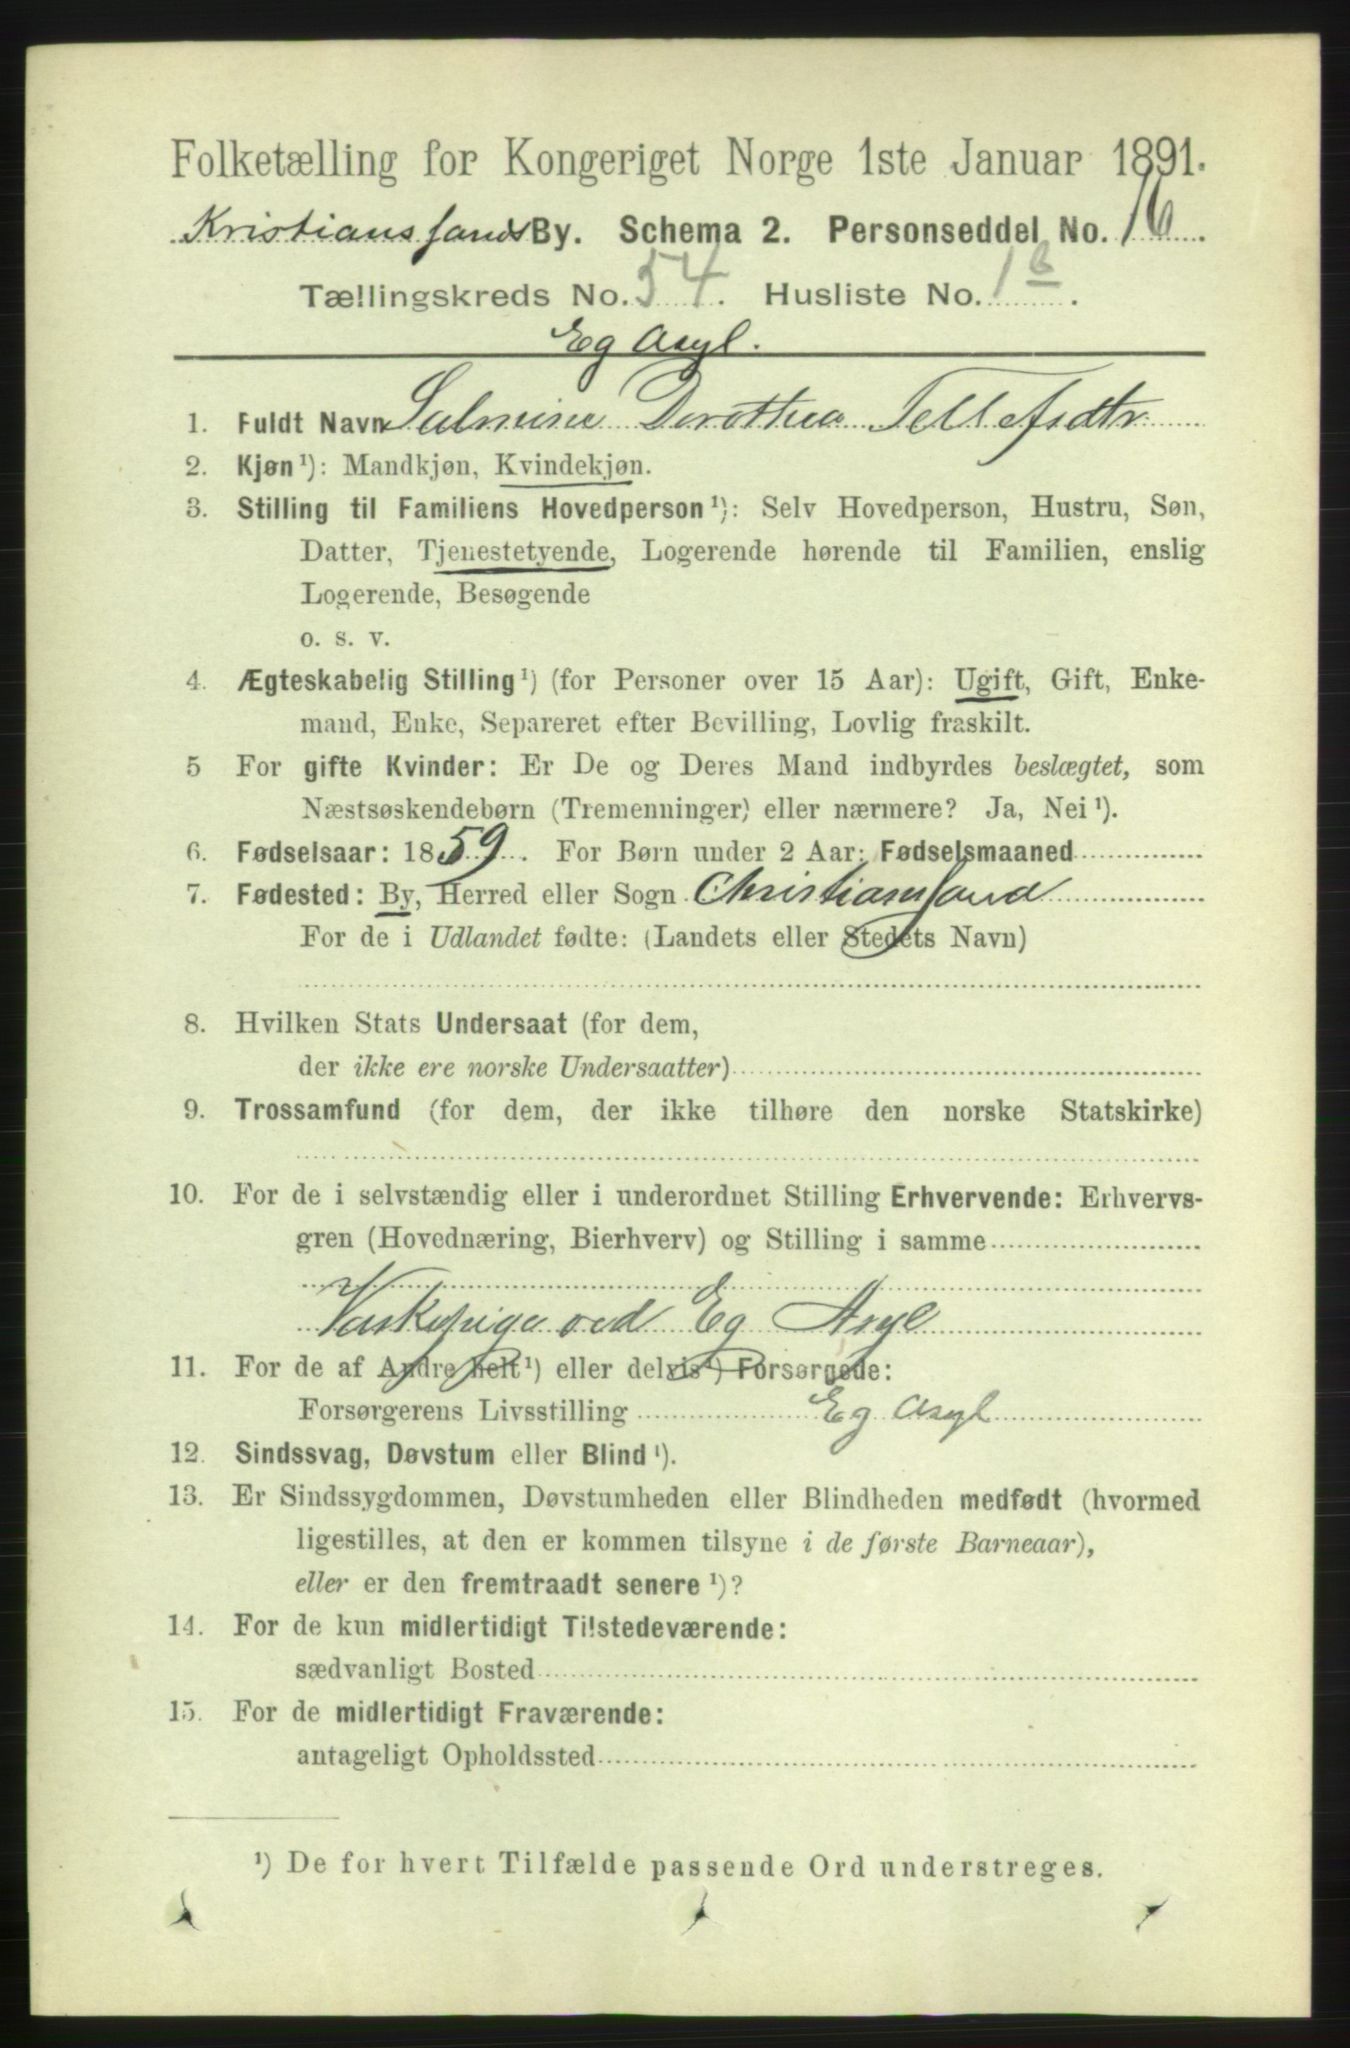 Folketælling for Kongeriget Norge 1ste Januar 1891.
Kristianssands By. Schema 2. Personseddel No. 16.
Tællingskreds No. 54. Husliste No. 1 B.
Eg Asyl.
1. Fuldt Navn Salmine Dorothea Tellefsdtr
2. Kjøn ¹): Mandkjøn, Kvindekjøn.
3. Stilling til Familiens Hovedperson ¹): Selv Hovedperson, Hustru, Søn,
Datter, Tjenestetyende, Logerende hørende til Familien, enslig
Logerende, Besøgende
o. s. v.
4. Ægteskabelig Stilling ¹) (for Personer over 15 Aar): Ugift, Gift, Enke-
mand, Enke, Separeret efter Bevilling, Lovlig fraskilt.
5 For gifte Kvinder: Er De og Deres Mand indbyrdes beslægtet, som
Næstsøskendebørn (Tremenninger) eller nærmere? Ja, Nei ¹).
6. Fødselsaar: 1859. For Børn under 2 Aar: Fødselsmaaned
7. Fødested: By, Herred eller Sogn Christianssand
For de i Udlandet fødte: (Landets eller Stedets Navn)
8. Hvilken Stats Undersaat (for dem,
der ikke ere norske Undersaatter)
9. Trossamfund (for dem, der ikke tilhøre den norske Statskirke)
10. For de i selvstændig eller i underordnet Stilling Erhvervende: Erhvervs-
gren (Hovednæring, Bierhverv) og Stilling i samme
Vaskepige ved Eg Asyl
11. For de af Andre helt ¹) eller delvis ¹) Forsørgede:
Forsørgerens Livsstilling Eg Asyl
12. Sindssvag, Døvstum eller Blind ¹).
13. Er Sindssygdommen, Døvstumheden eller Blindheden medfødt (hvormed
ligestilles, at den er kommen tilsyne i de første Barneaar),
eller er den fremtraadt senere ¹)?
14. For de kun midlertidigt Tilstedeværende:
sædvanligt Bosted
15. For de midlertidigt Fraværende:
antageligt Opholdssted
¹) De for hvert Tilfælde passende Ord understreges.